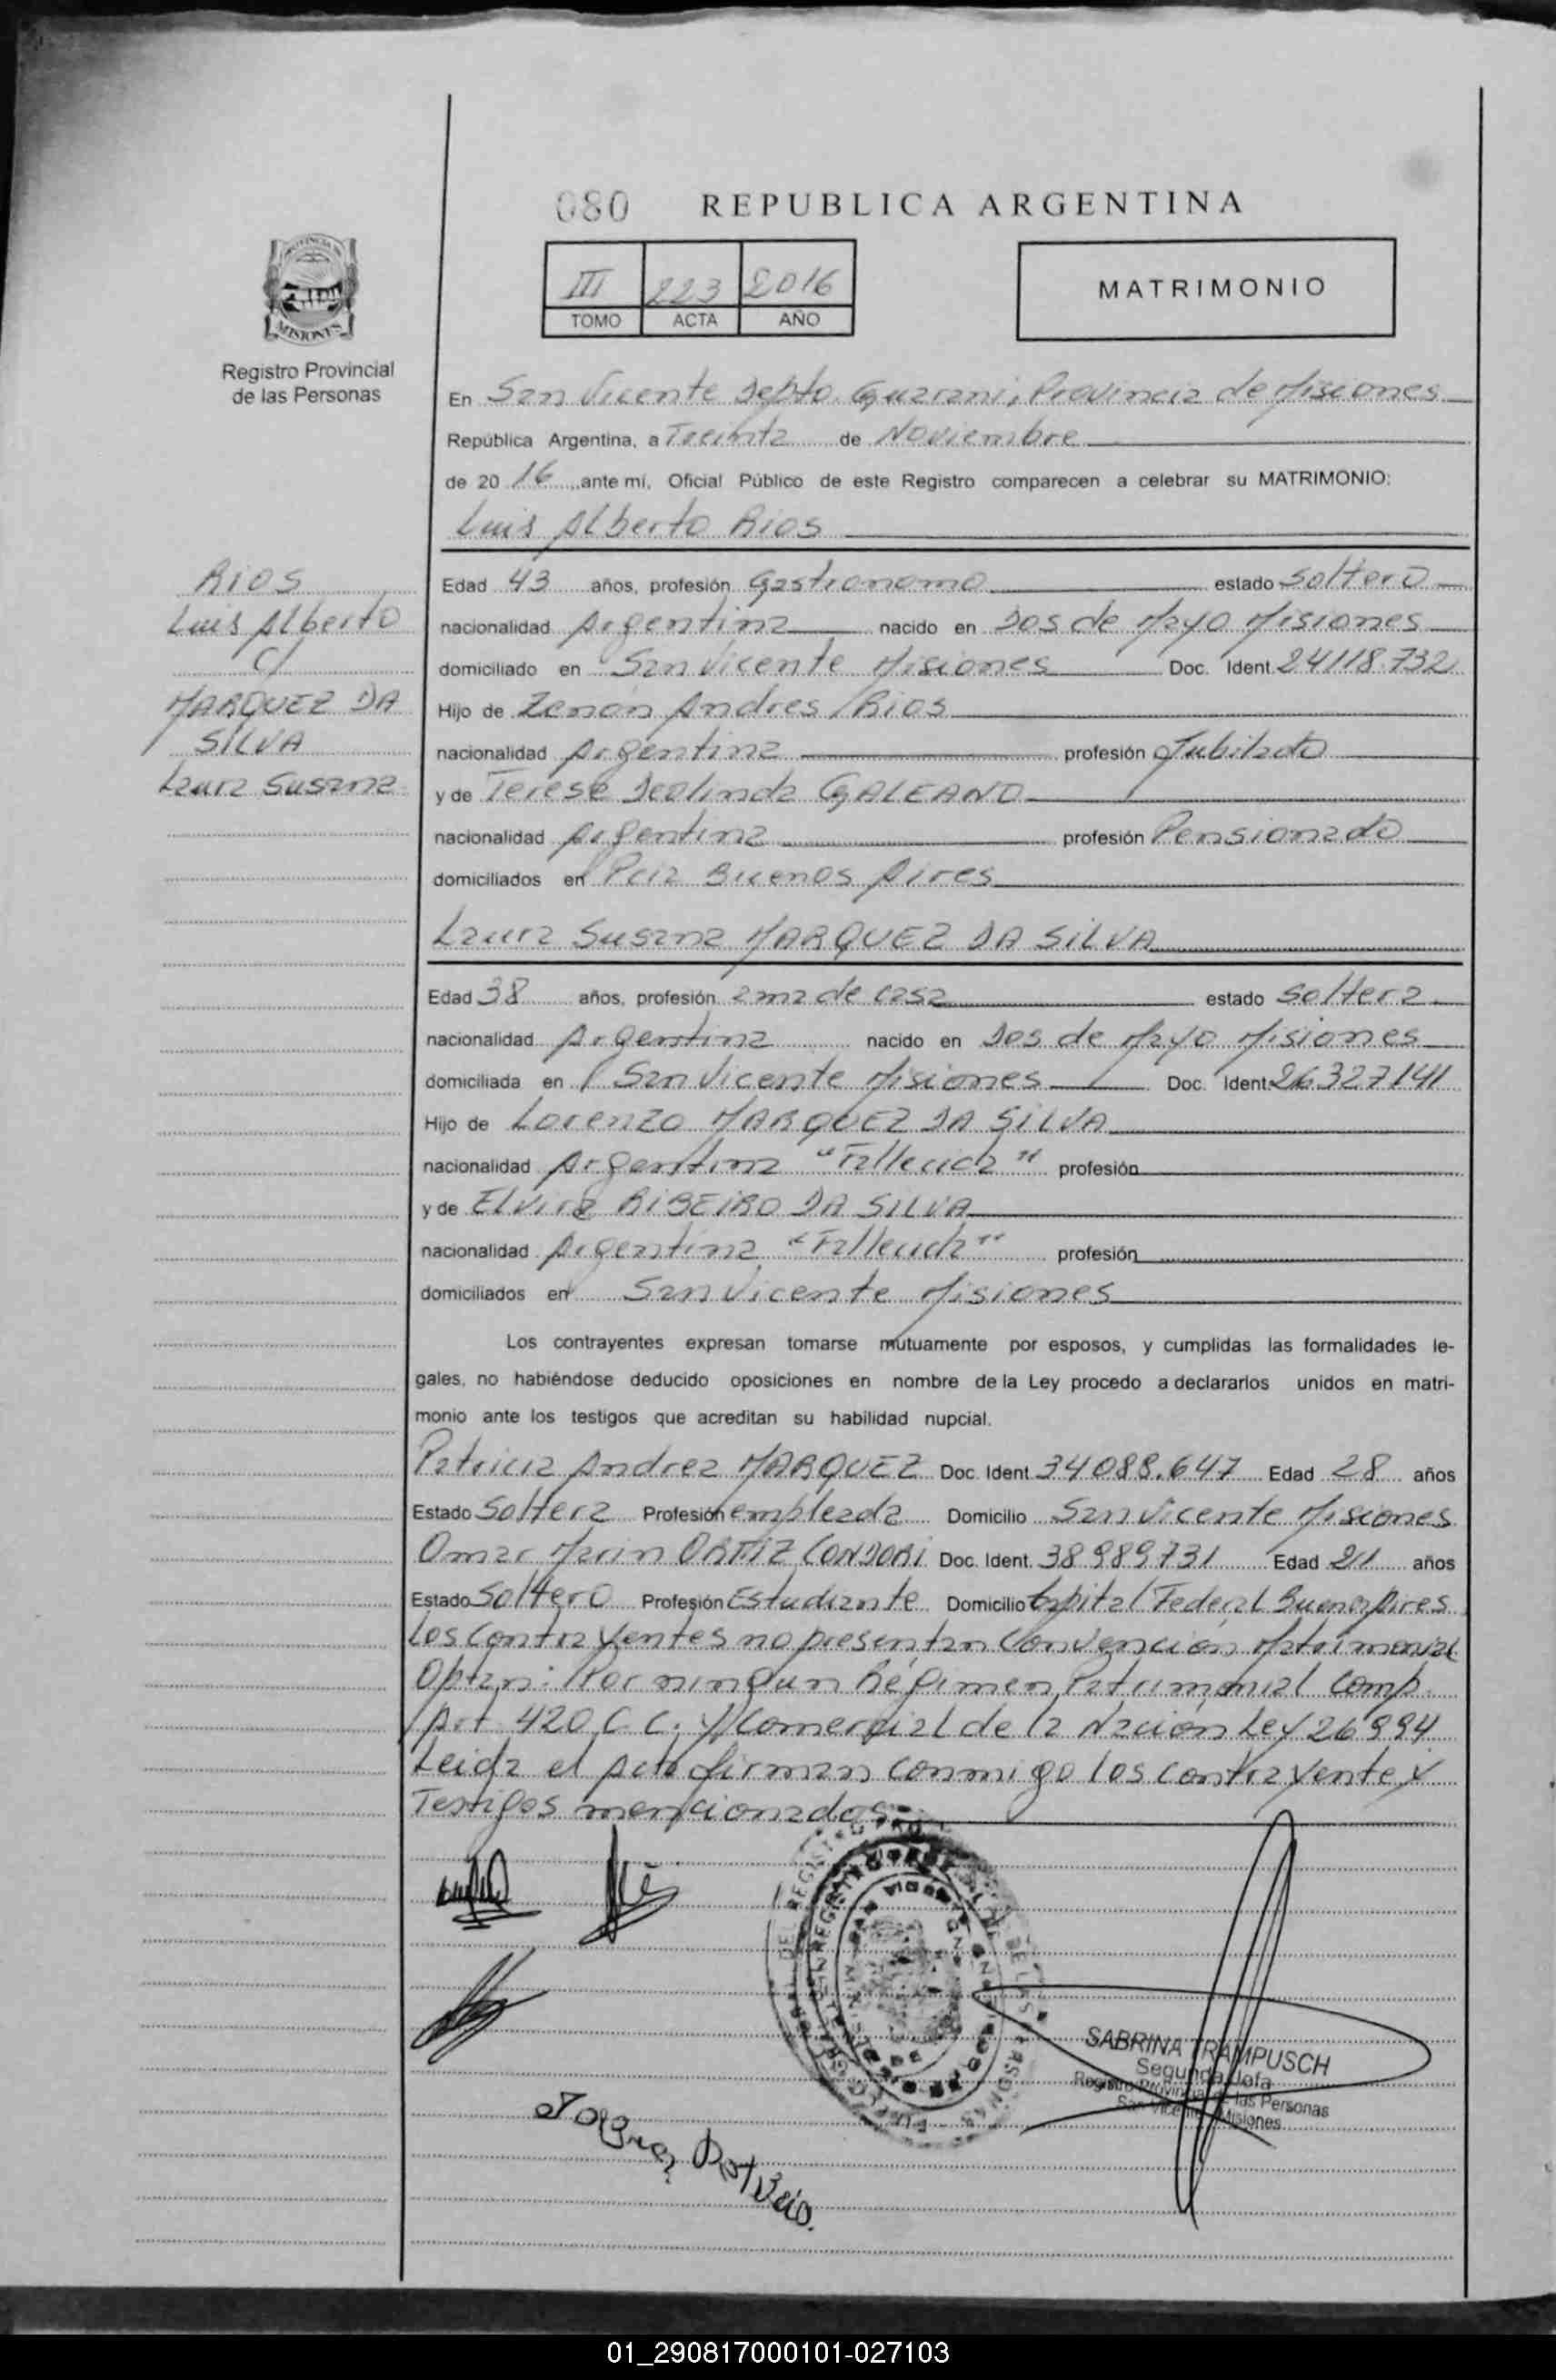 080 REPUBLICA ARGENTINA
III 223 2016
TOMO ACTA AÑO
MATRIMONIO
MISIONES
Registro Provincial
de las Personas
En San Vicente Depto. Guarani, Provincia de Misiones
República Argentina, a Treinta de Noviembre
de 20 16 ante mí, Oficial Público de este Registro comparecen a celebrar su MATRIMONIO:
Luis Alberto Rios
RIOS
Luis Alberto
C/
MARQUEZ DA
SILVA
Laura Susana
Edad 43 años, profesión Gastronomo estado Soltero
nacionalidad Argentina nacido en Dos de Mayo Misiones
domiciliado en San Vicente Misiones Doc. Ident. 24118.732
Hijo de Zenón Andres Rios
nacionalidad Argentina profesión Jubilado
y de Terese Deolinda GALEANO
nacionalidad Argentina profesión Pensionado
domiciliados en Pcia Buenos Aires
Laura Susana MARQUEZ DA SILVA
Edad 38 años, profesión ama de casa estado Soltera
nacionalidad Argentina nacido en Dos de Mayo Misiones
domiciliada en San Vicente Misiones Doc. Ident. 26327141
Hijo de Lorenzo MARQUEZ DA SILVA
nacionalidad Argentina "Fallecida" profesión
y de Elvira RIBEIRO DA SILVA
nacionalidad Argentina "Fallecida" profesión
domiciliados en San Vicente Misiones
Los contrayentes expresan tomarse mutuamente por esposos, y cumplidas las formalidades le-
gales, no habiéndose deducido oposiciones en nombre de la Ley procedo a declararlos unidos en matri-
monio ante los testigos que acreditan su habilidad nupcial.
Patricia Andrea MARQUEZ Doc. Ident. 34088.647 Edad 28 años
Estado Soltera Profesión empleada Domicilio San Vicente Misiones
Omar Marin ORTIZ CONDORI Doc. Ident. 38989731 Edad 21 años
Estado Soltero Profesión Estudiante Domicilio Capital Federal Buenos Aires
Los Contrayentes no presentan Convención Matrimonial
Optan: Por ningun Régimen Patrimonial Comp.
Art 420 C.C. y Comercial de la Nación Ley 26994
Leida el Acta firman conmigo los contrayente y
Testigos mencionados
SABRINA TRAMPUSCH
Segunda Jefa
Registro Provincial de las Personas
San Vicente Misiones
01_290817000101-027103